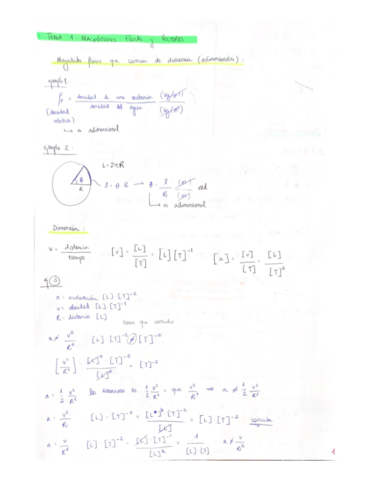 TEMA 1: MAGNITUDES FÍSICAS y VECTORES
Magnitudes físicas que carecen de dimensión (adimensionales):
ejemplo 1
ρr = densidad de una sustancia (kg/m³) / densidad del agua (kg/m³)
(densidad relativa)
↳ es adimensional
ejemplo 2:
L=2πR
θ
R
l = θ · R → θ = l/R (m)/(m) rad
↳ es adimensional
Dimensión:
v = distancia/tiempo [v] = [L]/[T] = [L][T]⁻¹ [a] = [v]/[T] = [L]/[T]²
a = aceleración [L]·[T]⁻²
v = velocidad [L][T]⁻¹
R = distancia [L]
a ≠ v²/R² [L]·[T]⁻² ≠ [T]⁻²
[v²/R²] = [L]²·[T]⁻²/[L]² = [T]⁻²
a = 1/2 v²/R² 1/2 v²/R² = que v²/R² ⇒ a ≠ 1/2 v²/R²
a = v²/R [L]·[T]⁻² = [L]²[T]⁻²/[L] = [L]·[T]⁻² correcta
a = v/R² [L]·[T]⁻² = [L][T]⁻¹/[L]² = 1/[L]·[T] a ≠ v/R²
1